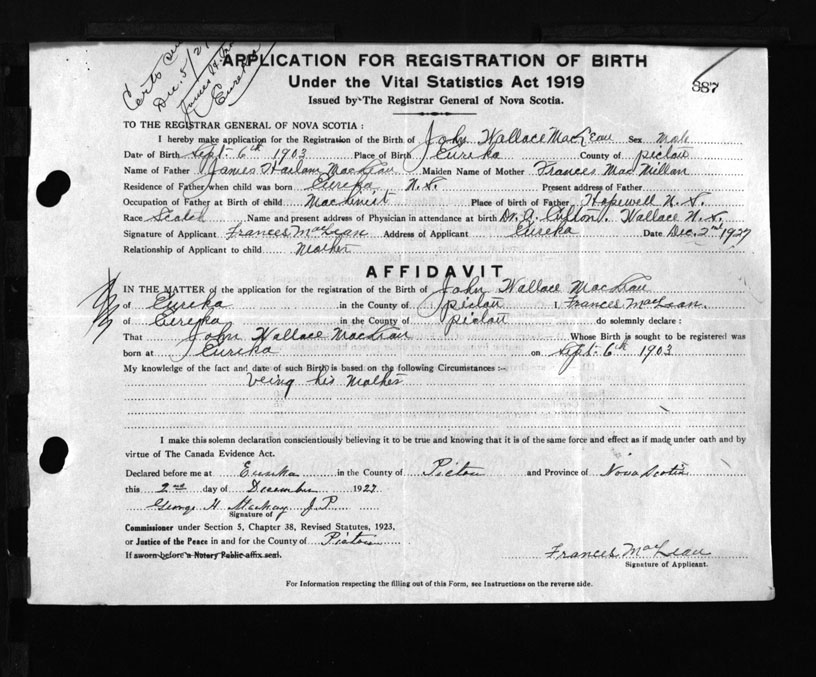 Dec. 5/27
Eureka
APPLICATION FOR REGISTRATION OF BIRTH
887
Under the Vital Statistics Act 1919
Issued by The Registrar General of Nova Scotia.
TO THE REGISTRAR GENERAL OF NOVA SCOTIA :
I hereby make application for the Registration of the Birth of John Wallace MacLean Sex Male
Date of Birth Sept. 6th 1903 Place of Birth Eureka County of Pictou
Name of Father James Harlam MacLean Maiden Name of Mother Frances MacMillan
Residence of Father when child was born Eureka N.S. Present address of Father
Occupation of Father at Birth of child Machinist Place of birth of Father Hopewell N.S.
Race Scotch Name and present address of Physician in attendance at birth Dr. Wallace N.S.
Signature of Applicant Frances MacLean Address of Applicant Eureka Date Dec. 2nd 1927
Relationship of Applicant to child Mother
AFFIDAVIT
IN THE MATTER of the application for the registration of the Birth of John Wallace MacLean
of Eureka in the County of Pictou I, Frances MacLean.
of Eureka in the County of Pictou do solemnly declare :
That John Wallace MacLean Whose Birth is sought to be registered was
born at Eureka on Sept. 6th 1903
My knowledge of the fact and date of such Birth is based on the following Circumstances :—
being his Mother
I make this solemn declaration conscientiously believing it to be true and knowing that it is of the same force and effect as if made under oath and by
virtue of The Canada Evidence Act.
Declared before me at Eureka in the County of Pictou and Province of Nova Scotia
this 2nd day of December 1927
George H MacKay J.P.
Signature of
Commissioner under Section 5, Chapter 38, Revised Statutes, 1923,
or Justice of the Peace in and for the County of Pictou
If sworn before a Notary Public affix seal.
Frances MacLean
Signature of Applicant.
For Information respecting the filling out of this Form, see Instructions on the reverse side.